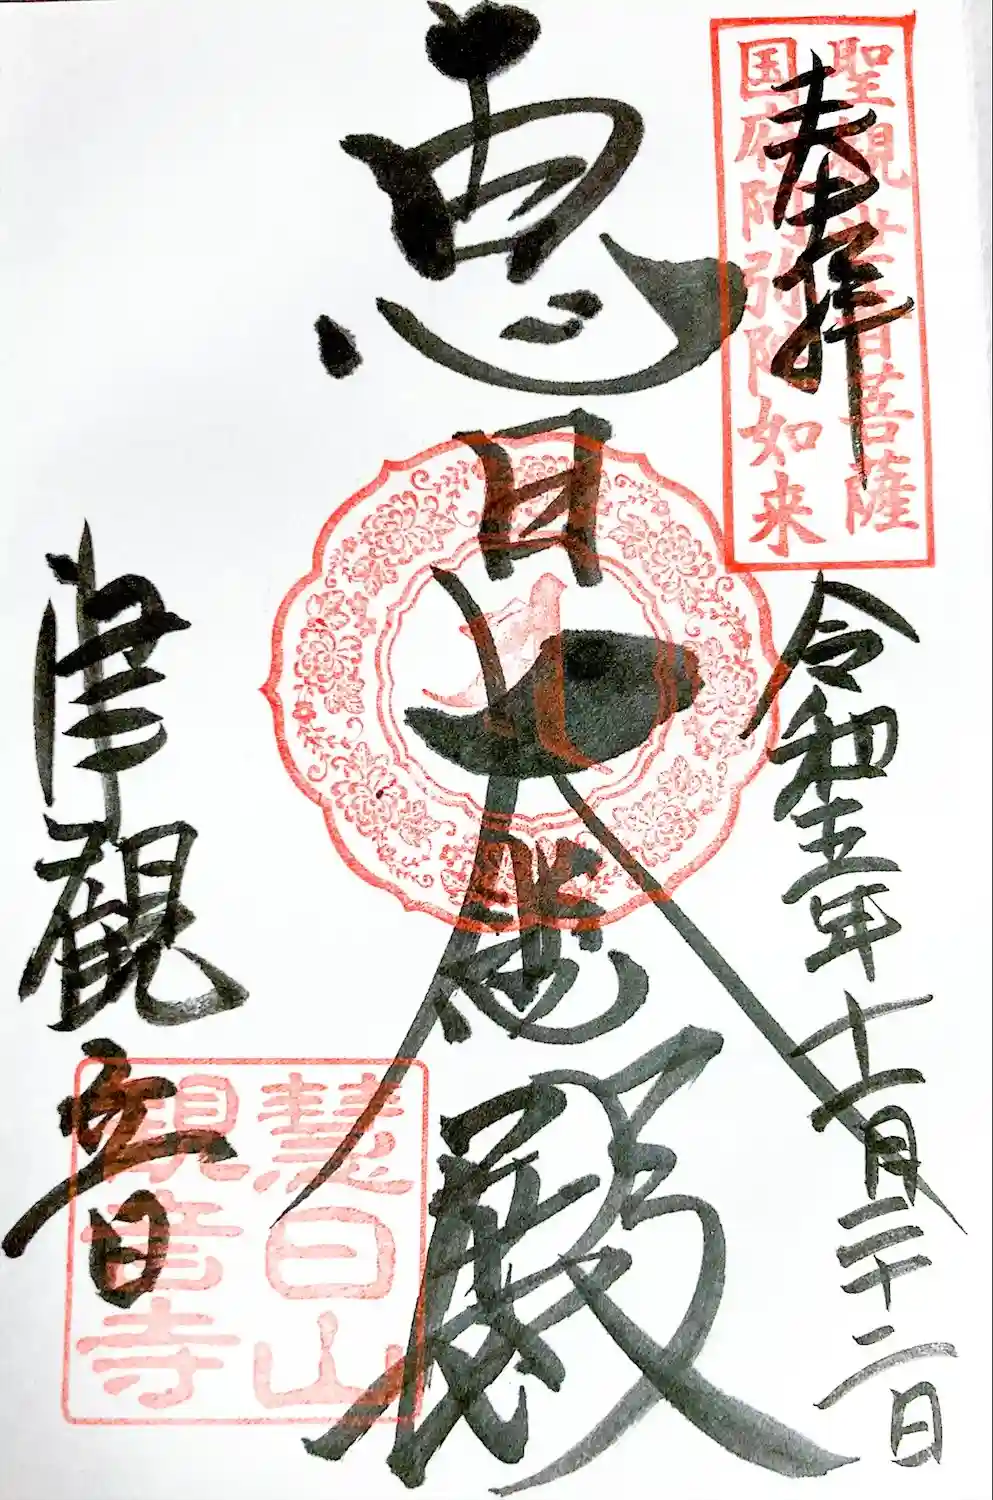 聖観世音菩薩
国府阿弥陀如来
奉拝
令和五年十一月二十二日
恵日大悲殿
津観音
慧日山
観音寺